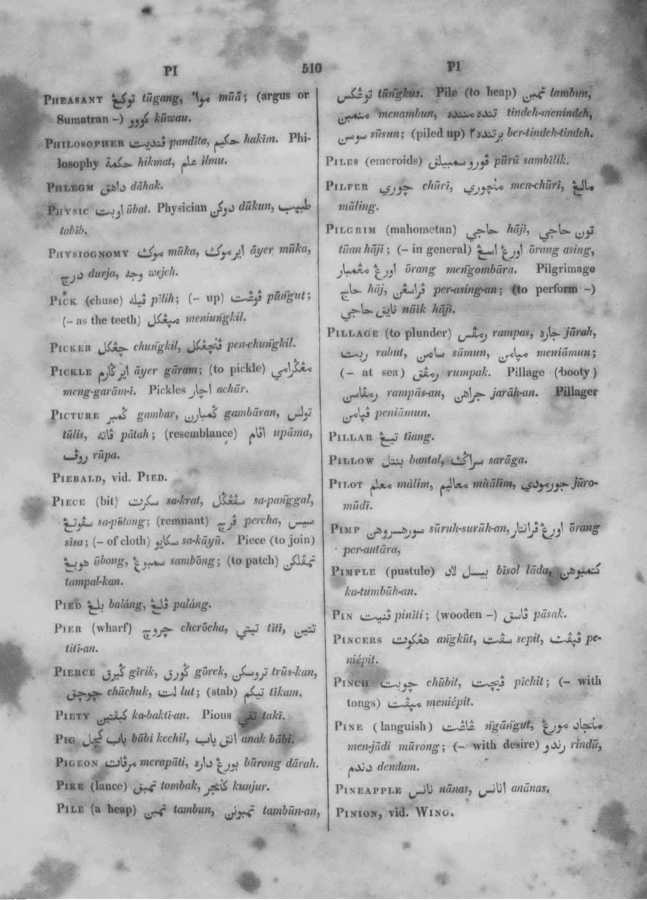 PI 510 PI
PHEASANT توكڠ tūgang, موا muā; (argus or
Sumatran -) كووو kūwau.
PHILOSOPHER ڤنديت pandīta, حكيم hakīm. Phi-
losophy حكمة hikmat, علم ilmu.
PHLEGM داهق dāhak.
PHYSIC اوبت ūbat. Physician دوكن dūkun, طبيب
tabīb.
PHYSIOGNOMY موك mūka, اير موك āyer mūka,
درج durja, وجه wejeh.
PICK (chuse) pīlih; (- up) pūngut;
(- as the teeth) meniungkil.
PICKER چڠكل chungkil, ڤنچڠكل pen-chungkil.
PICKLE اير گارم āyer gāram; (to pickle) مڠگرامي
meng-garām-i. Pickles اچار achār.
PICTURE گمبر gambar, گمبارن gambāran, تولس
tūlis, ڤاته pātah; (resemblance) اڤام upāma,
روڤ rūpa.
PIEBALD, vid. PIED.
PIECE (bit) سكرت sa-krat, سڤڠگل sa-panggal,
سڤوتڠ sa-pōtong; (remnant) ڤرچ percha, سيس
sīsa; (- of cloth) سكايو sa-kāyū. Piece (to join)
هوبڠ ūbong, سمبوڠ sambōng; (to patch) تمڤلكن
tampal-kan.
PIED بلڠ balāng, ڤلڠ palāng.
PIER (wharf) چروچ cherōcha, تيتي tītī, تتين
tītī-an.
PIERCE گيرق gīrik, گورق gōrek, تروسكن trūs-kan,
چوچق chūchuk, لت lut; (stab) تيكم tīkam.
PIETY كبقتين ka-baktī-an. Pious تقي takī.
PIG بابي كچل bābi kechil, انق بابي anak bābi.
PIGEON مرڤات merapāti, بورڠ داره būrong dārah.
PIKE (lance) تمبق tombak, كنجر kunjur.
PILE (a heap) تمبن tambun, تمبونن tambūn-an,
توڠكس tūngkus. Pile (to heap) تمبن tambun,
منمبن menambun, tindeh-menindeh,
سوسن sūsun; (piled up) برتنده٢ ber-tindeh-tindeh.
PILES (emeroids) ڤورو سمبيلق pūrū sambīlik.
PILFER چوري chūrī, منچوري men-chūrī, مالڠ
māling.
PILGRIM (mahometan) حاجي hājī, تون حاجي
tūan hājī; (- in general) اورڠ اسڠ ōrang asing,
اورڠ مڠمبار ōrang mengombāra. Pilgrimage
حاج hāj, ڤراسڠن per-asing-an; (to perform -)
نايق حاجي nāik hājī.
PILLAGE (to plunder) رمڤس rampas, جاره jārah,
ربت rabut, سامن sāmun, ميامن meniāmun;
(- at sea) رمڤق rumpak. Pillage (booty)
رمڤاسن rampās-an, جراهن jarāh-an. Pillager
ڤيامن peniāmun.
PILLAR تيڠ tīang.
PILLOW بنتل bantal, سراگ sarāga.
PILOT معلم mālim, معاليم miālīm, جورمودي jūro-
mūdī.
PIMP sūruh-surūh-an, ōrang
per-antāra,
PIMPLE (pustule) بيسل لاد bīsol lāda, كتمبوهن
ka-tumbūh-an.
PIN ڤنيت pinītī; (wooden -) ڤاسق pāsak.
PINCERS اڠكوت angkūt, سڤت sepit, ڤڤت pe-
niépit.
PINCH چوبت chūbit, ڤيچت pīchit; (- with
tongs) ميڤت meniépit.
PINE (languish) ngāngut, منجاد مورڠ
men-jādi mūrong; (- with desire) رندو rindū,
دندم dendam.
PINEAPPLE نانس nānas, انانس anānas.
PINION, vid. WING.